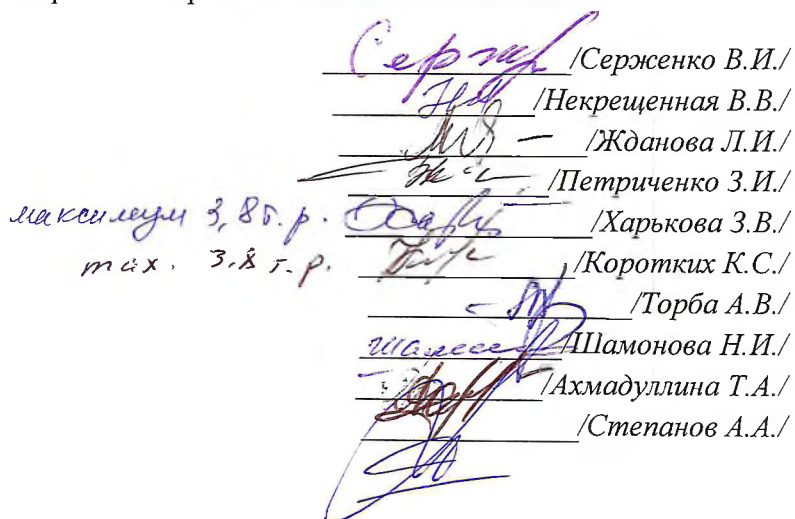 /Серженко В.И./
/Некрещенная В.В./
/Жданова Л.И./
/Петриченко З.И./
максимум 3,8 т.р. /Харькова З.В./
max. 3.8 т.р. /Коротких К.С./
/Торба А.В./
/Шамонова Н.И./
/Ахмадуллина Т.А./
/Степанов А.А./